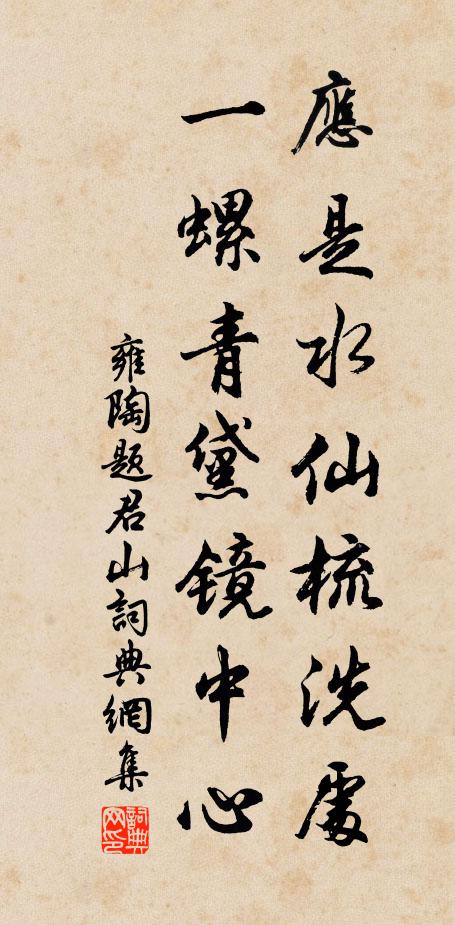 應是水仙梳洗處
一螺青黛鏡中心
雍陶題君山詞典網集
詞典网印